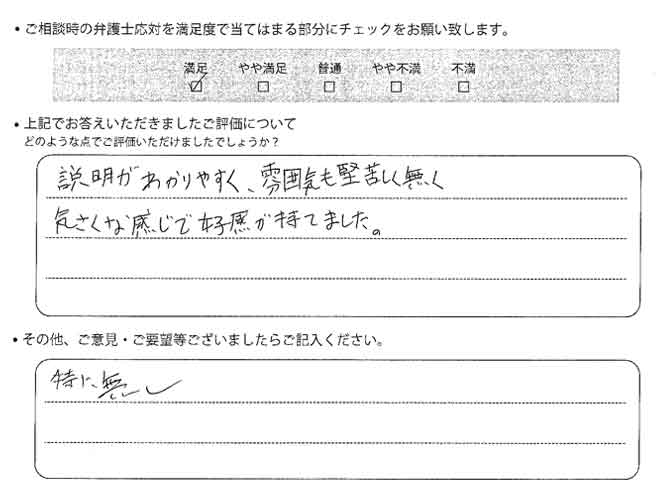 • ご相談時の弁護士応対を満足度で当てはまる部分にチェックをお願い致します。
満足 やや満足 普通 やや不満 不満
☑ □ □ □ □
• 上記でお答えいただきましたご評価について
どのような点でご評価いただけましたでしょうか？
説明がわかりやすく、雰囲気も堅苦しく無く
気さくな感じで好感が持てました。
• その他、ご意見・ご要望等ございましたらご記入ください。
特に、無し